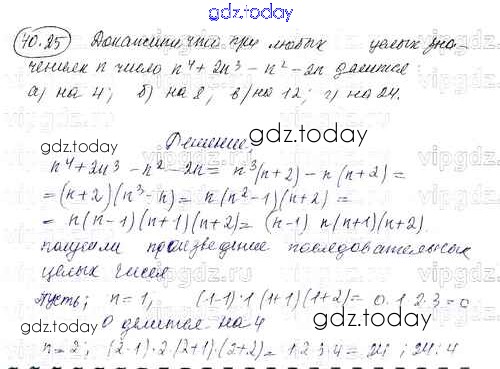 gdz.today
40.25 Докажите, что при любых целых зна-
чениях n число n⁴ + 2n³ - n² - 2n делится
а) на 4; б) на 8; в) на 12; г) на 24.
gdz.today gdz.today
Решение:
n⁴ + 2n³ - n² - 2n = n³(n+2) - n(n+2) =
= (n+2)(n³ - n) = n(n² - 1)(n+2) =
= n(n-1)(n+1)(n+2) = (n-1) n(n+1)(n+2)
получили произведение последовательных
целых чисел
Пусть; n = 1, (1-1)·1(1+1)(1+2) = 0·1·2·3 = 0
0 делится на 4
gdz.today gdz.today
n = 2; (2-1)·2·(2+1)·(2+2) = 1·2·3·4 = 24; 24:4